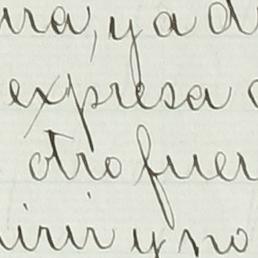 ra, y a d
expresa
otro fuer
irir y no